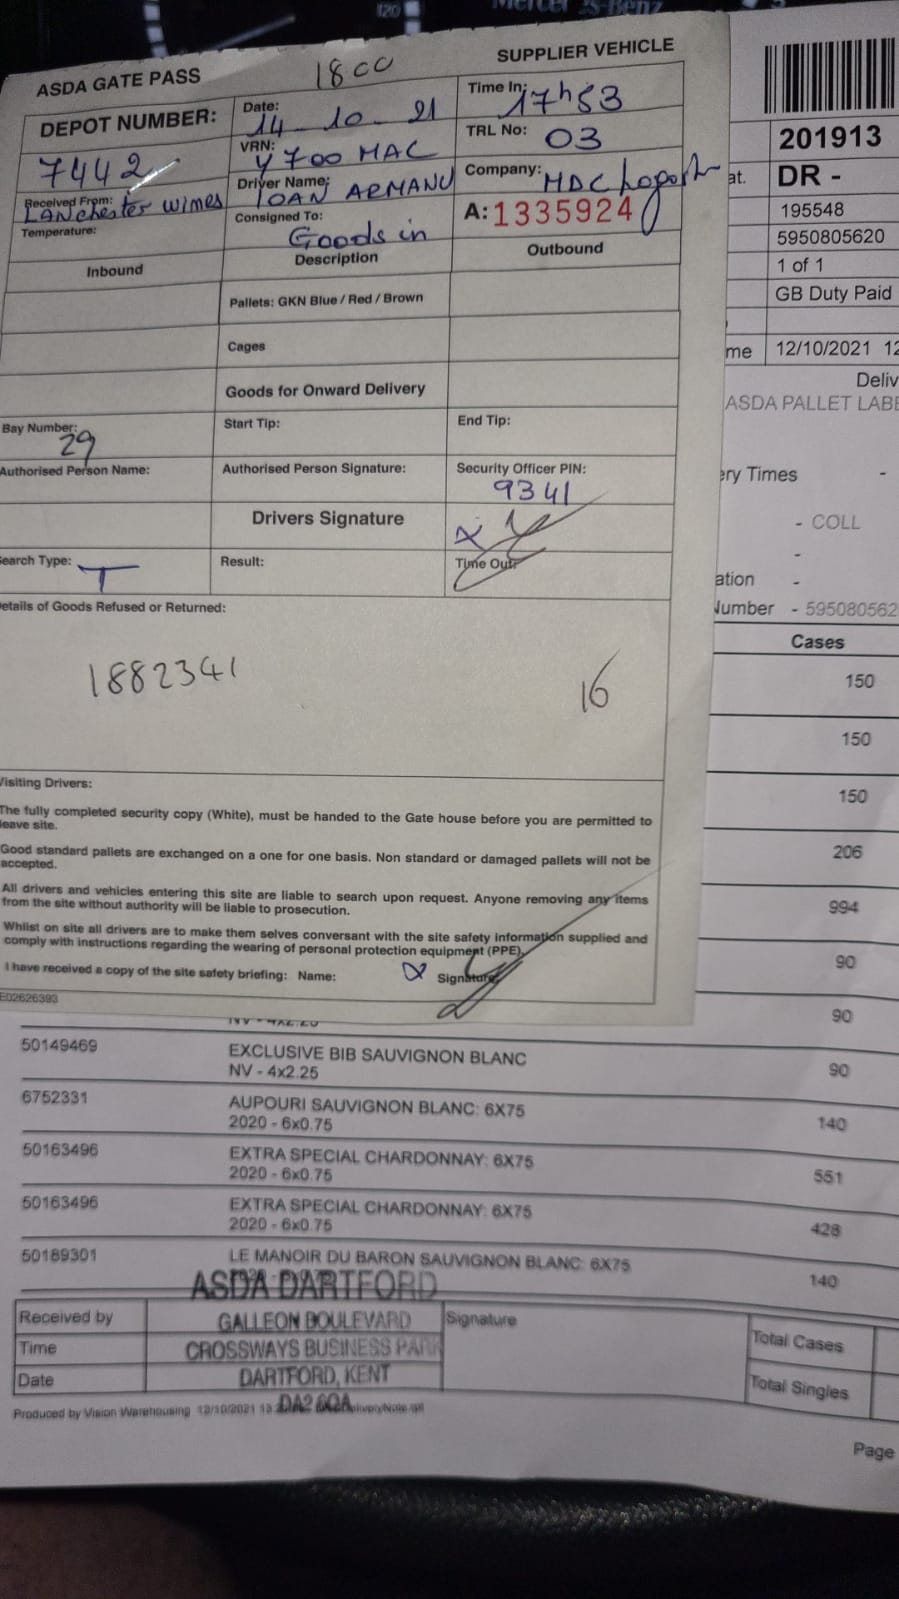 120
Mercedes-Benz
ASDA GATE PASS
1800
SUPPLIER VEHICLE
DEPOT NUMBER:
7442
Date:
14-10-21
Time In:
17h53
VRN:
Y700 MAC
TRL No:
03
Received From:
LANchester wines
Driver Name:
IOAN ARMANU
Company:
Temperature:
Consigned To:
Goods in
A:1335924
Inbound
Description
Outbound
Pallets: GKN Blue / Red / Brown
Cages
Goods for Onward Delivery
Bay Number:
29
Start Tip:
End Tip:
Authorised Person Name:
Authorised Person Signature:
Security Officer PIN:
9341
Drivers Signature
x
earch Type:
T
Result:
Time Out:
etails of Goods Refused or Returned:
1882341
16
Visiting Drivers:
The fully completed security copy (White), must be handed to the Gate house before you are permitted to
leave site.
Good standard pallets are exchanged on a one for one basis. Non standard or damaged pallets will not be
accepted.
All drivers and vehicles entering this site are liable to search upon request. Anyone removing any items
from the site without authority will be liable to prosecution.
Whilst on site all drivers are to make them selves conversant with the site safety information supplied and
comply with instructions regarding the wearing of personal protection equipment (PPE).
I have received a copy of the site safety briefing: Name:
Signature:
E02626393
201913
at. DR -
195548
5950805620
1 of 1
GB Duty Paid
me 12/10/2021 12
Deliv
ASDA PALLET LABE
ery Times -
- COLL
-
ation -
Number - 595080562
Cases
150
150
150
206
994
90
90
NV - 4x2.25
50149469 EXCLUSIVE BIB SAUVIGNON BLANC
NV - 4x2.25 90
6752331 AUPOURI SAUVIGNON BLANC: 6X75
2020 - 6x0.75 140
50163496 EXTRA SPECIAL CHARDONNAY: 6X75
2020 - 6x0.75 551
50163496 EXTRA SPECIAL CHARDONNAY: 6X75
2020 - 6x0.75 428
50189301 LE MANOIR DU BARON SAUVIGNON BLANC: 6X75
140
ASDA DARTFORD
GALLEON BOULEVARD
CROSSWAYS BUSINESS PARK
DARTFORD, KENT
DA2 6QA
Received by
Time
Date
Signature
Total Cases
Total Singles
Produced by Vision Warehousing 12/10/2021
Page